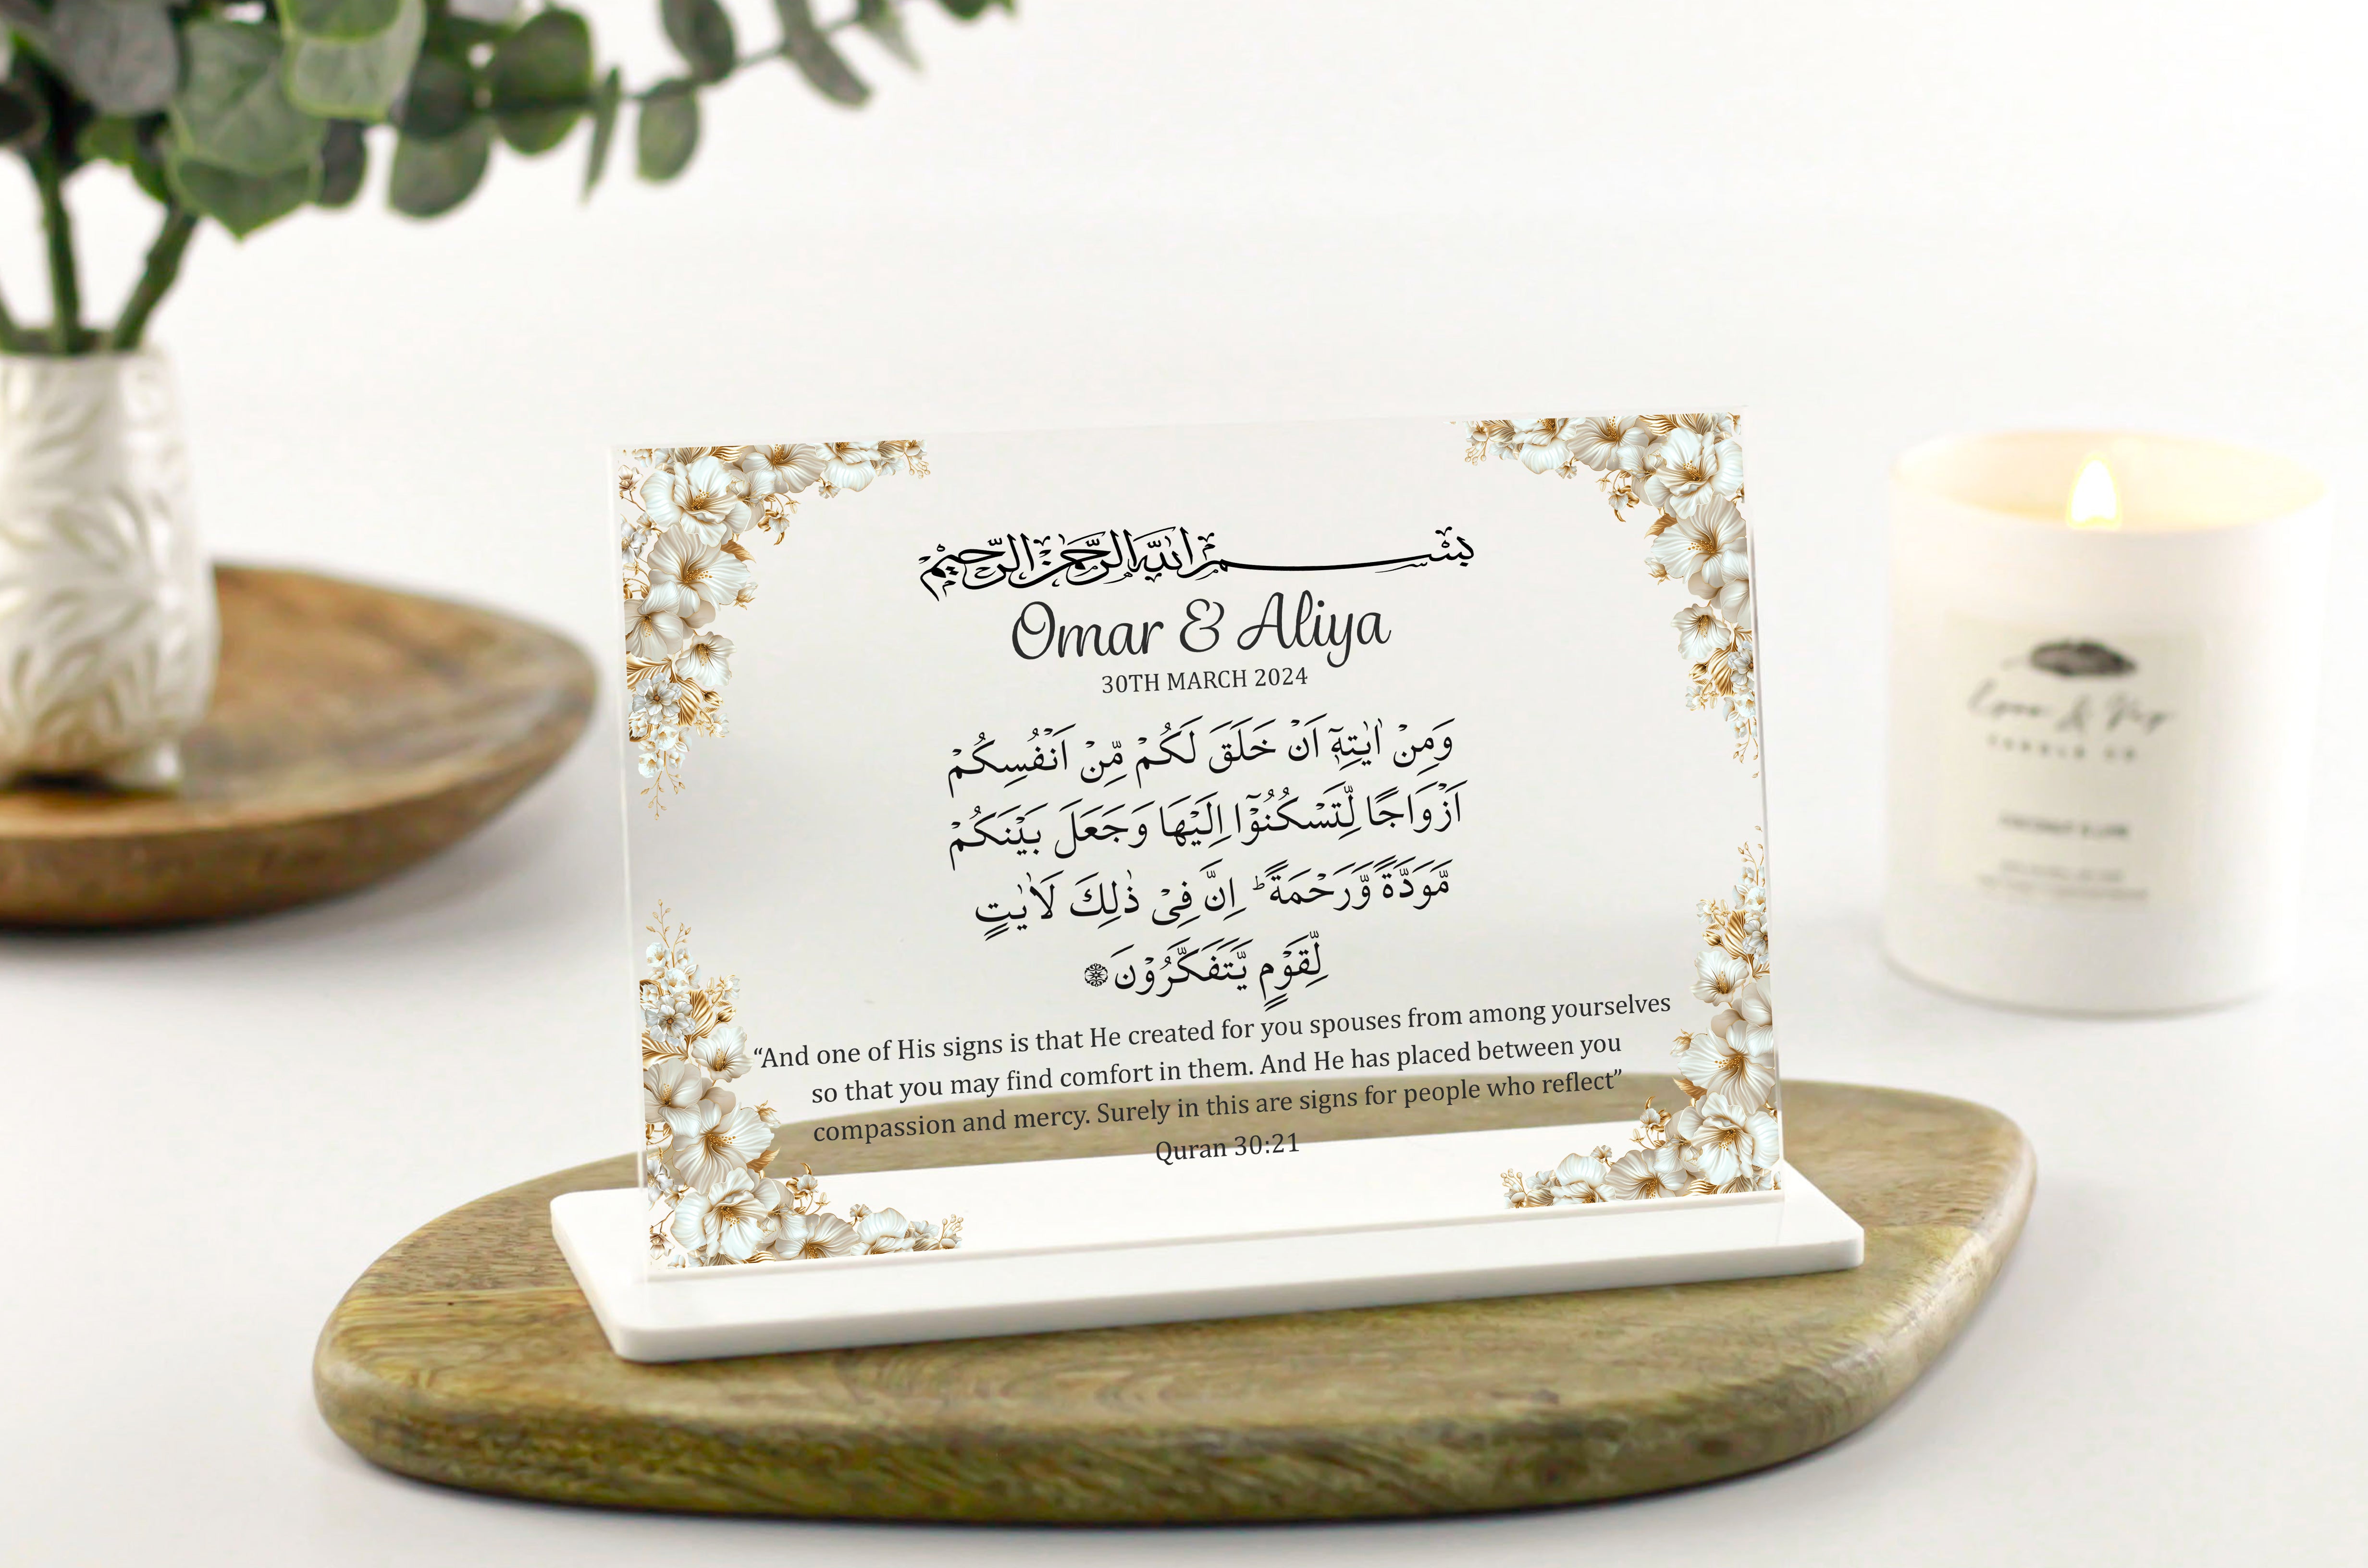 بسم الله الرحمن الرحيم
Omar & Aliya
30TH MARCH 2024
وَمِنْ اٰيٰتِهٖٓ اَنْ خَلَقَ لَكُمْ مِّنْ اَنْفُسِكُمْ
اَزْوَاجًا لِّتَسْكُنُوْٓا اِلَيْهَا وَجَعَلَ بَيْنَكُمْ
مَّوَدَّةً وَّرَحْمَةً ؕ اِنَّ فِىْ ذٰلِكَ لَاٰيٰتٍ
لِّقَوْمٍ يَّتَفَكَّرُوْنَ
“And one of His signs is that He created for you spouses from among yourselves
so that you may find comfort in them. And He has placed between you
compassion and mercy. Surely in this are signs for people who reflect”
Quran 30:21
CANDLE CO
COCONUT & LIME